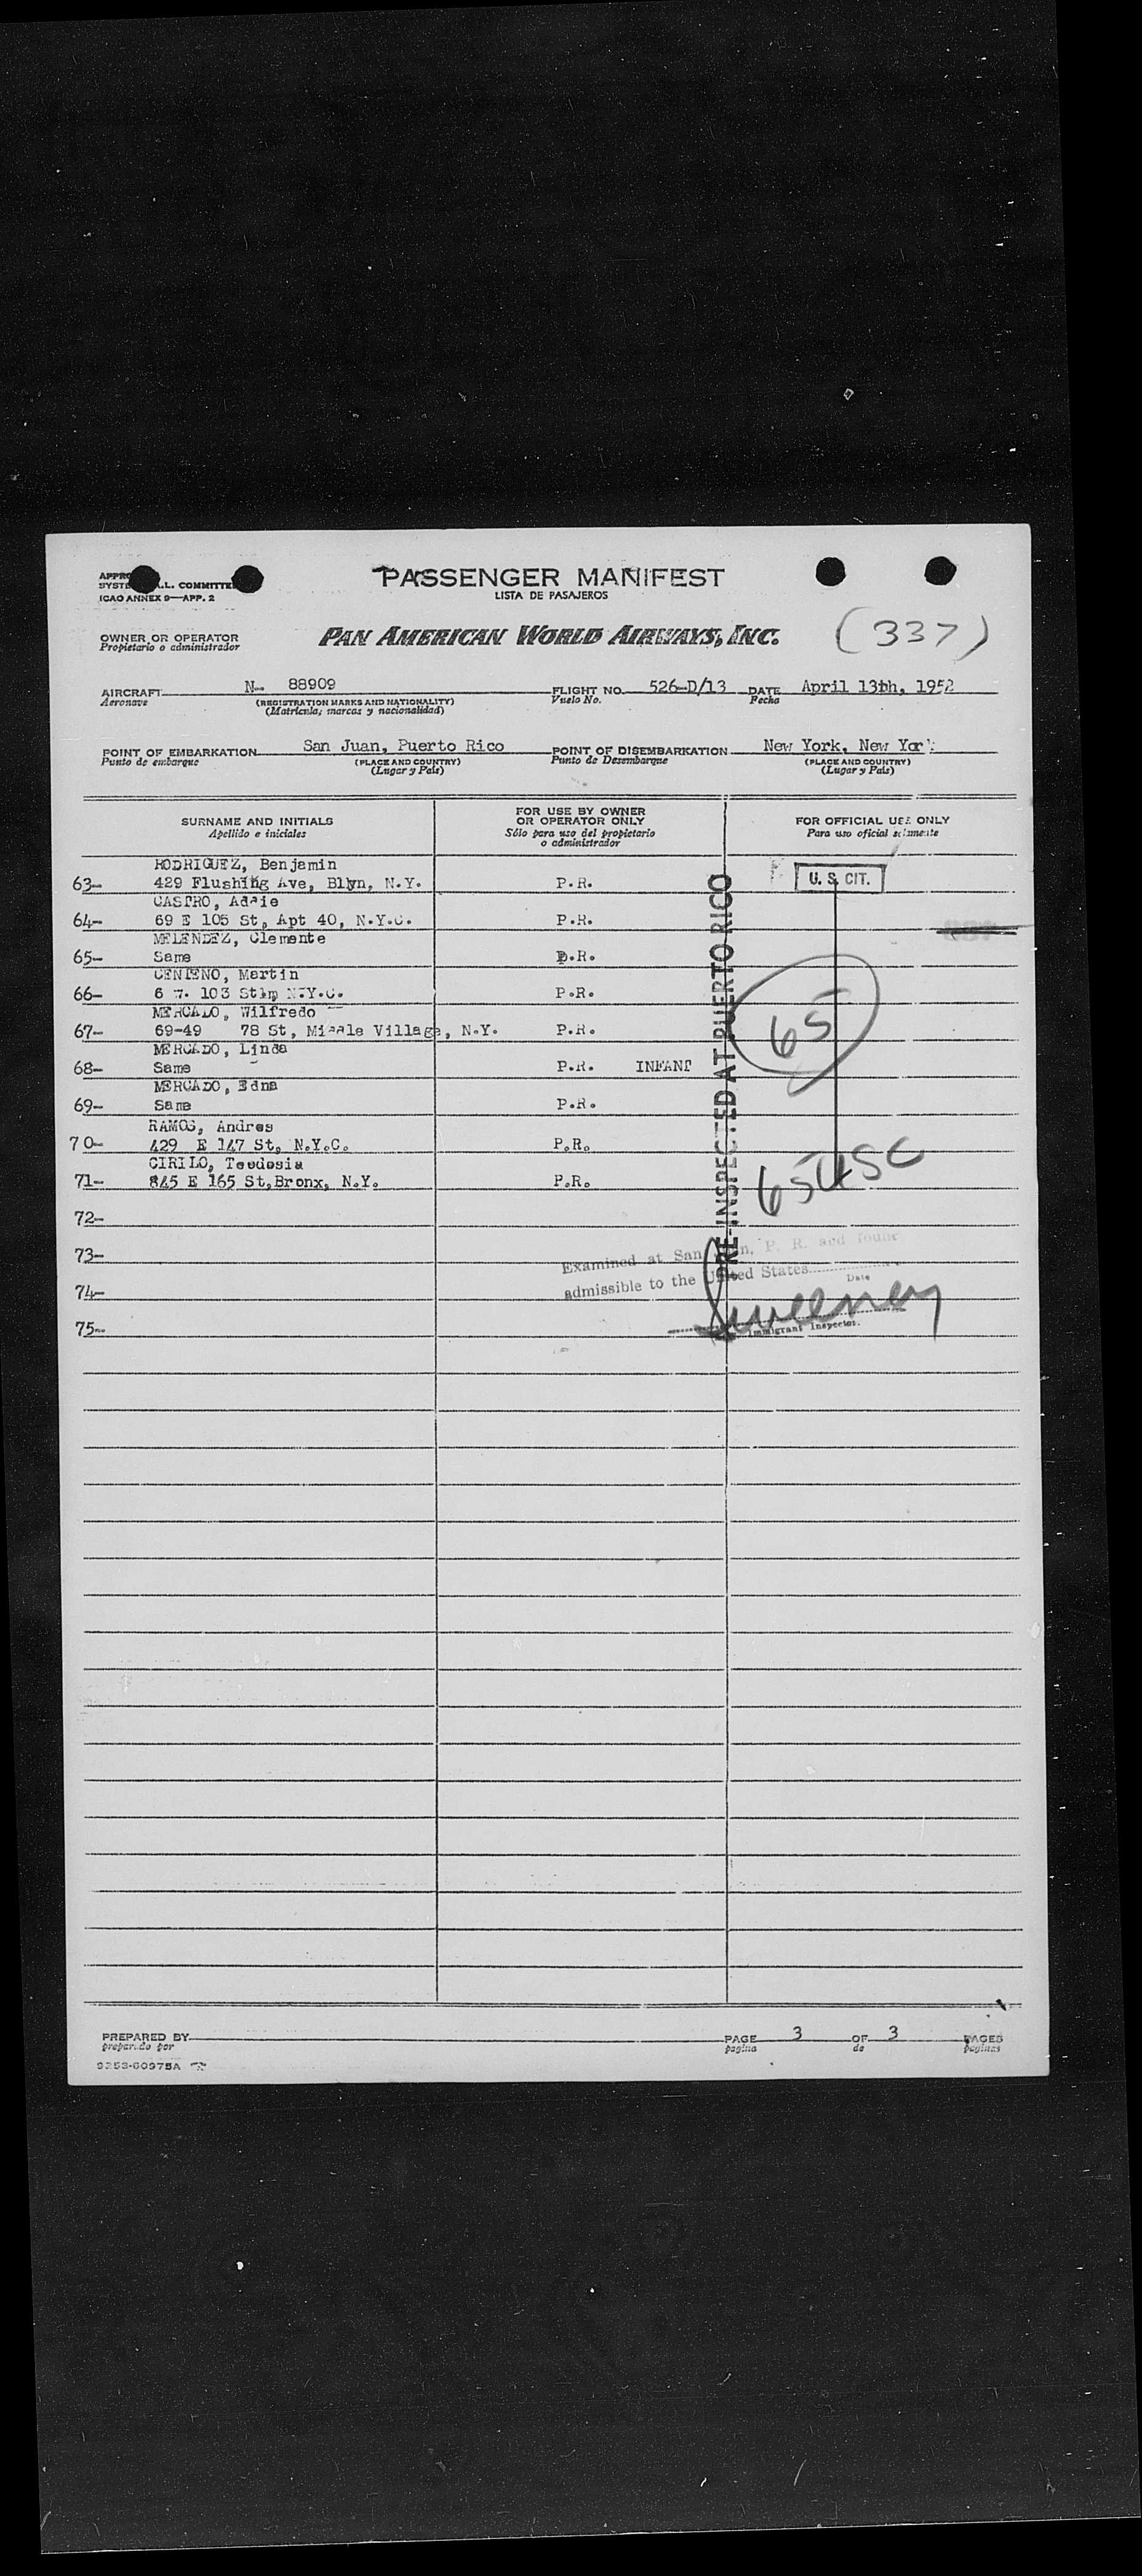 PASSENGER MANIFEST
LISTA DE PASAJEROS
L. COMMITTEE
ICAO ANNEX 9—APP. 2
OWNER OR OPERATOR
Propietario o administrador
PAN AMERICAN WORLD AIRWAYS, INC.
(337)
AIRCRAFT N- 88909 FLIGHT NO. 526-D/13 DATE April 13th, 1952
Aeronave (REGISTRATION MARKS AND NATIONALITY) Vuelo No. Fecha
(Matrícula, marcas y nacionalidad)
POINT OF EMBARKATION San Juan, Puerto Rico POINT OF DISEMBARKATION New York, New York
Punto de embarque (PLACE AND COUNTRY) Punto de Desembarque (PLACE AND COUNTRY)
(Lugar y País) (Lugar y País)
SURNAME AND INITIALS
Apellido e iniciales
FOR USE BY OWNER
OR OPERATOR ONLY
Sólo para uso del propietario
o administrador
FOR OFFICIAL USE ONLY
Para uso oficial solamente
RODRIGUEZ, Benjamin
63- 429 Flushing Ave, Blyn, N.Y. P.R. U. S. CIT.
CASTRO, Addie
64- 69 E 105 St, Apt 40, N.Y.C. P.R.
MELENDEZ, Clemente
65- Same P.R.
CENTENO, Martin
66- 6 W. 103 St N.Y.C. P.R.
MERCADO, Wilfredo
67- 69-49 78 St, Middle Village, N.Y. P.R.
MERCADO, Linda
68- Same P.R. INFANT
MERCADO, Edna
69- Same P.R.
RAMOS, Andres
70- 429 E 147 St, N.Y.C. P.R.
CIRILO, Teodosia
71- 845 E 165 St, Bronx, N.Y. P.R.
72-
73-
74-
75-
PRE-INSPECTED AT PUERTO RICO
65
65 USC
Examined at San Juan, P. R. and found
admissible to the United States
Date
Sweeney
Immigrant Inspector.
PREPARED BY PAGE 3 OF 3 PAGES
preparado por pagina de paginas
9253-60975A